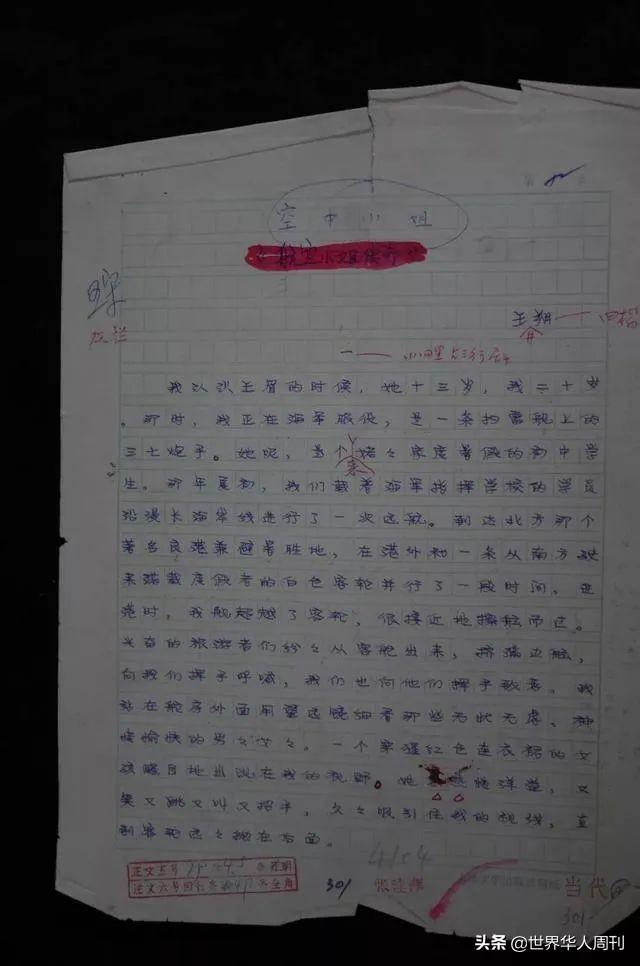 空中小姐
王朔
一
我认识王眉的时候，她十三岁，我二十岁
。那时，我正在海军服役，是一条扫雷舰上的
三七炮手。她呢，是个来姥々家度暑假的初中学
生。那年夏初，我们载着海军指挥学校的学员
沿漫长海岸线进行了一次远航。到达北方那个
著名良港兼避暑胜地，在港外和一条从南方驶
来满载度假者的白色客轮并行了一段时间。进
港时，我舰超越了客轮，很接近地擦舷而过。
兴奋的旅游者们纷々从客舱出来，挤满边舷，
向我们挥手呼喊，我们也向他们挥手致意。我
站在舱房外面用望远镜细看那些无忧无虑、神
情愉快的男々女々。一个穿猩红色连衣裙的女
孩瞩目地出现在我的视野。她 洋溢，又
笑又跳又叫又招手，久々吸引住我的视线，直
到客轮远々抛在后面。
正文五号
正文六号
301
4104
当代
301
头条 @世界华人周刊